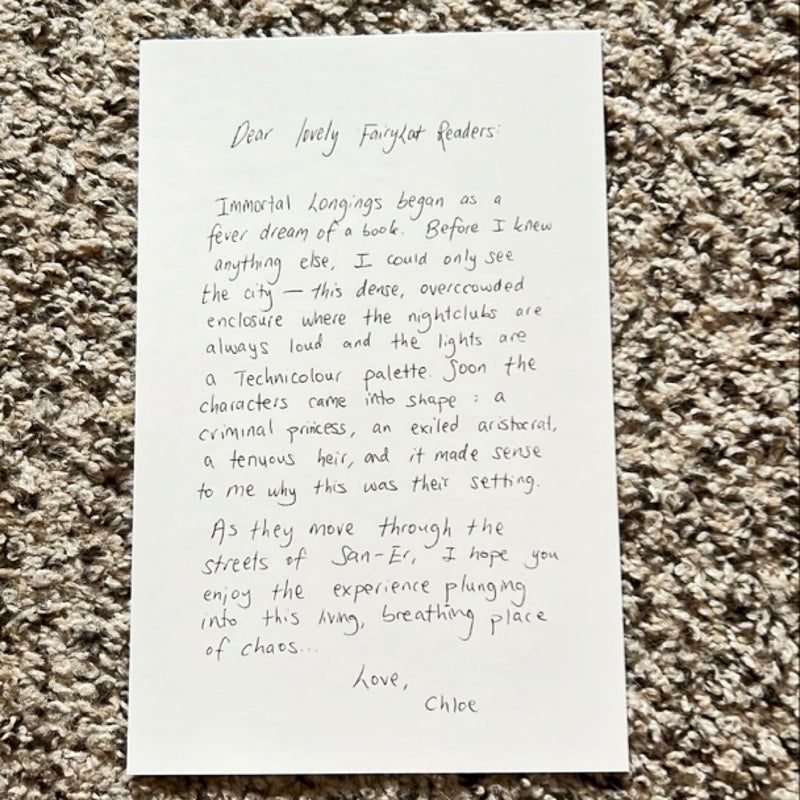 Dear lovely FairyLat Readers:
Immortal Longings began as a
fever dream of a book. Before I knew
anything else, I could only see
the city — this dense, overcrowded
enclosure where the nightclubs are
always loud and the lights are
a Technicolour palette. Soon the
characters came into shape : a
criminal princess, an exiled aristocrat,
a tenuous heir, and it made sense
to me why this was their setting.
As they move through the
streets of San-Er, I hope you
enjoy the experience plunging
into this living, breathing place
of chaos...
Love,
Chloe